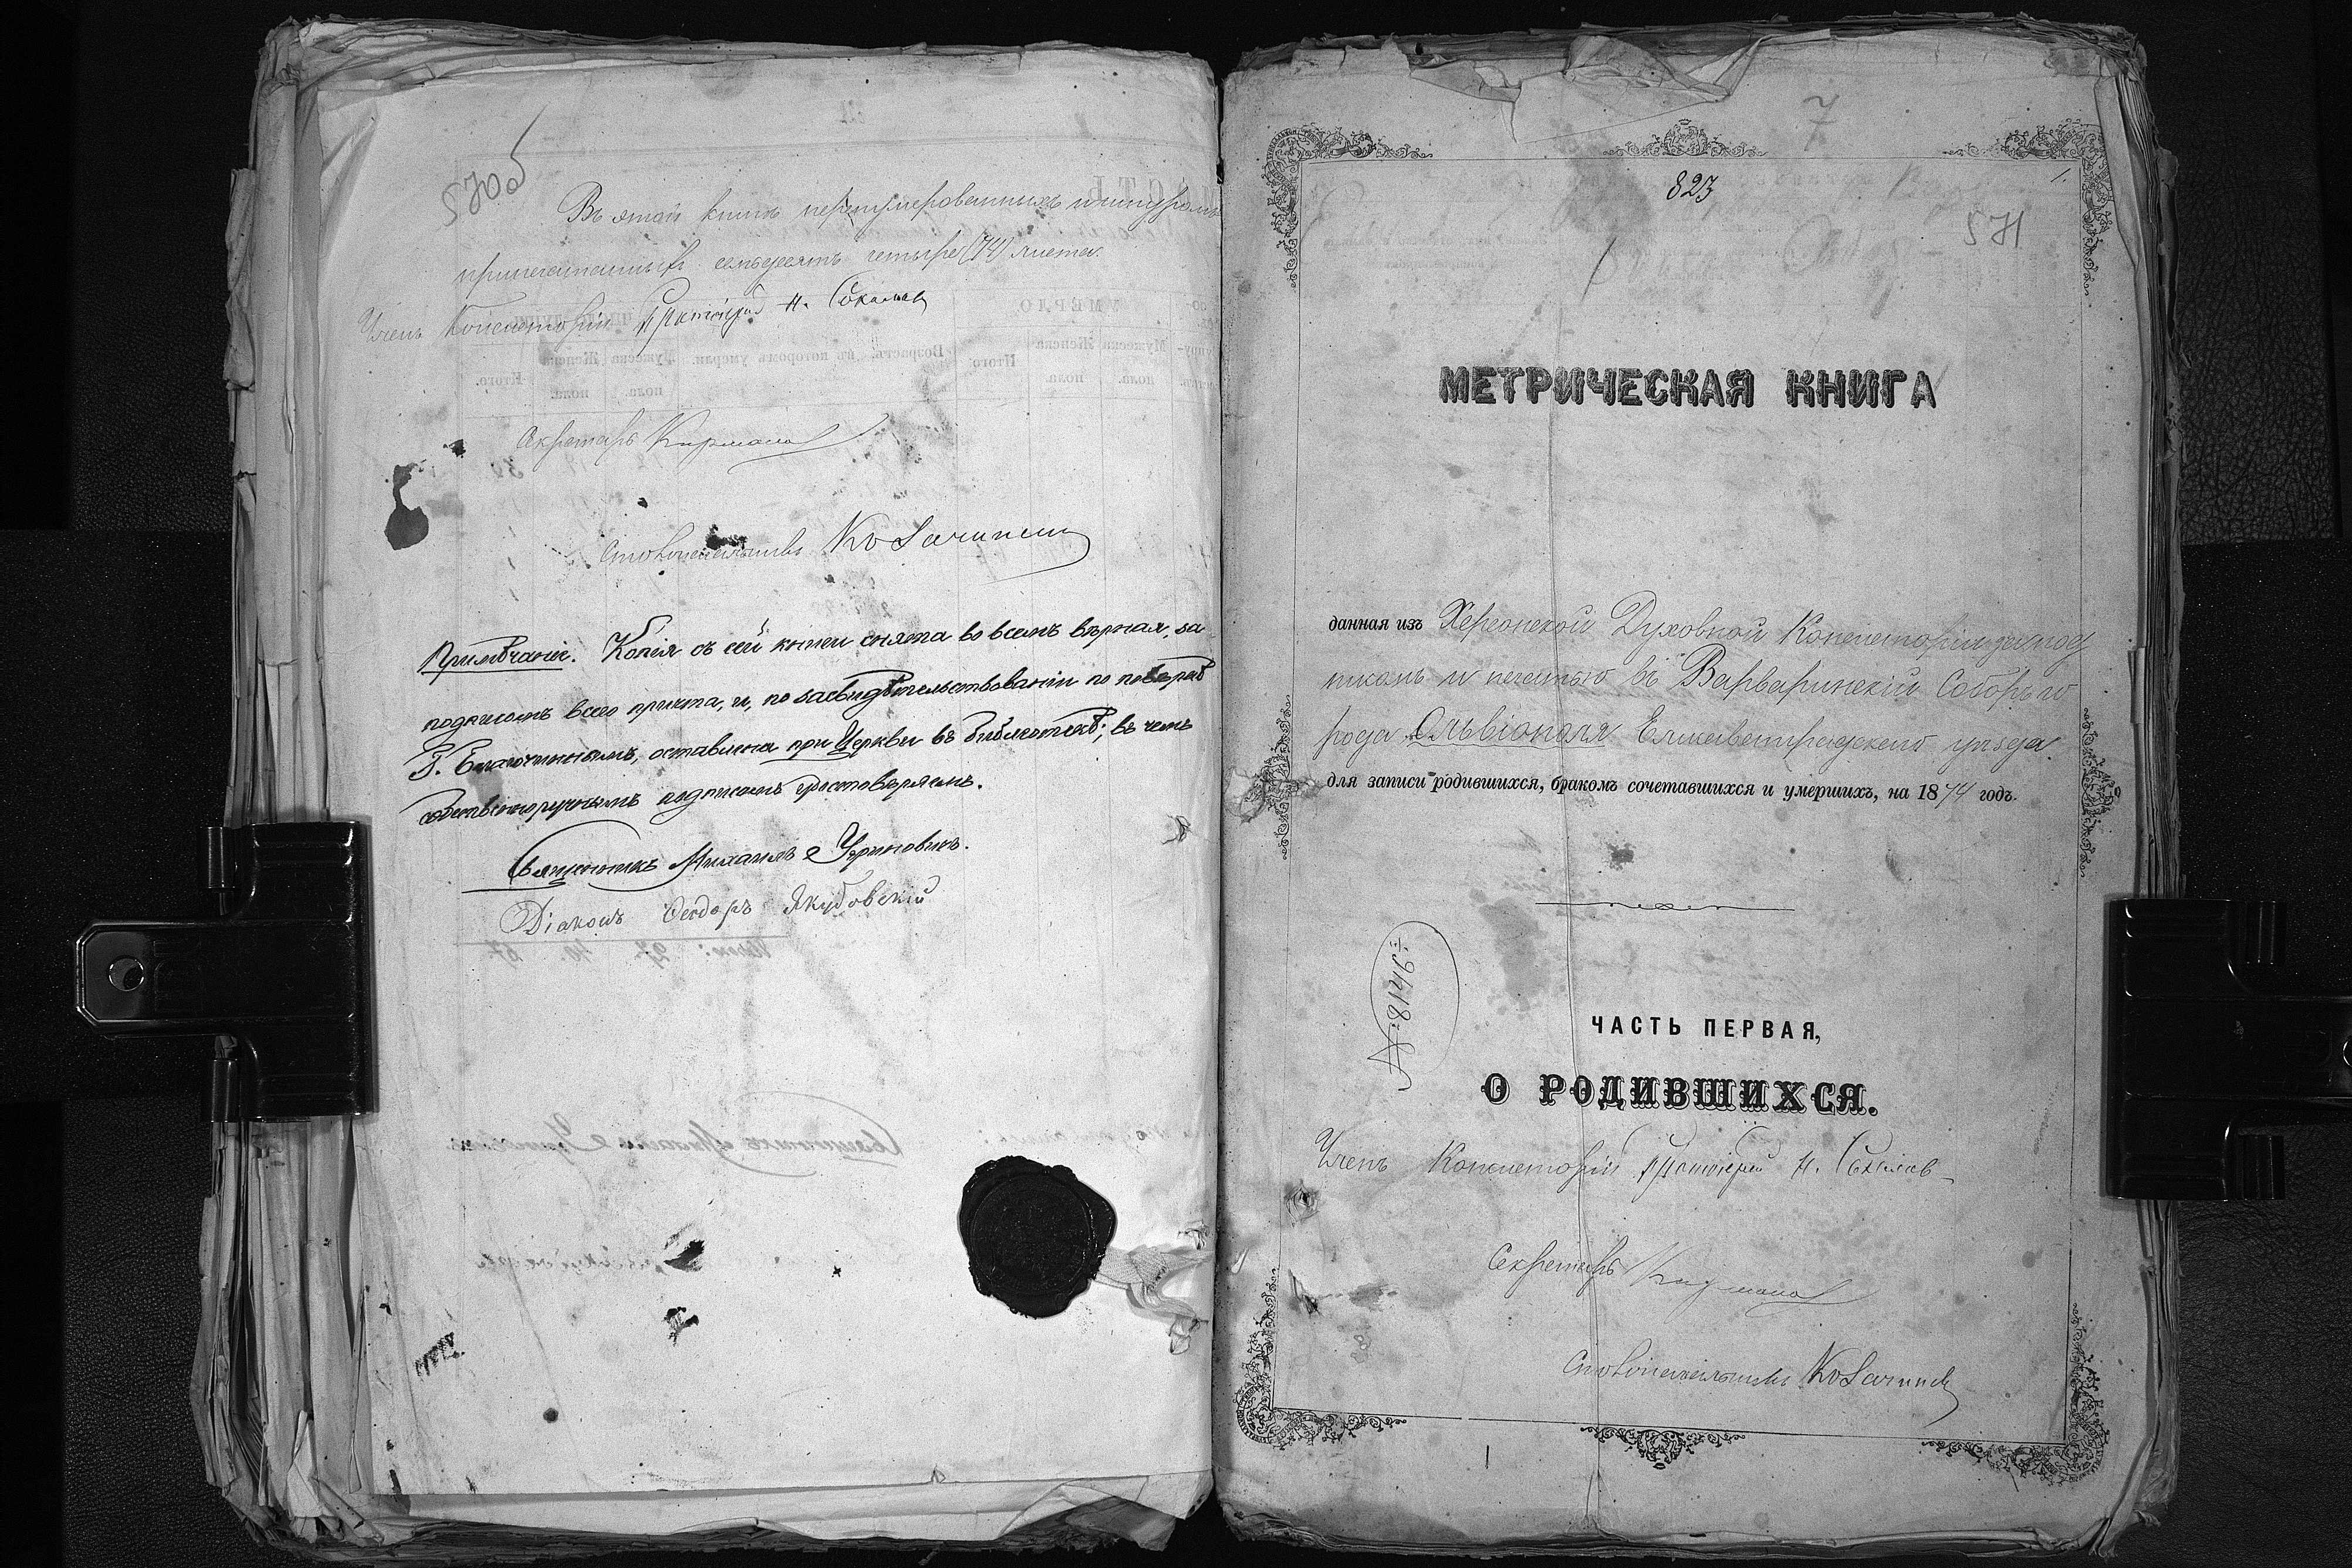 570об
Въ этой книгѣ перенумерованныхъ и шнуромъ
припечатанныхъ семьдесятъ четыре (74) листа.
Членъ Консисторіи Протоіерей Н. Соколовъ
Секретарь
Столоначальникъ
Примѣчаніе. Копія съ сей книги снята во всемъ вѣрная, за
подписомъ всего причта, и, по засвидѣтельствованіи по повѣркѣ
Г. Благочиннымъ, оставлена при Церкви въ библіотекѣ; въ чемъ
собственноручнымъ подписомъ удостовѣряемъ.
Священникъ Михаилъ
Діаконъ Ѳеодоръ Якубовскій
7
823
1.
571
МЕТРИЧЕСКАЯ КНИГА
данная изъ Херсонской Духовной Консисторіи за под
писомъ и печатью въ Варваринскій Соборъ го
рода Ольвіополя Елисаветградскаго уѣзда
для записи родившихся, бракомъ сочетавшихся и умершихъ, на 1874 годъ.
№ 8146
ЧАСТЬ ПЕРВАЯ,
О РОДИВШИХСЯ.
Членъ Консисторіи Протоіерей Н. Соколовъ
Секретарь
Столоначальникъ